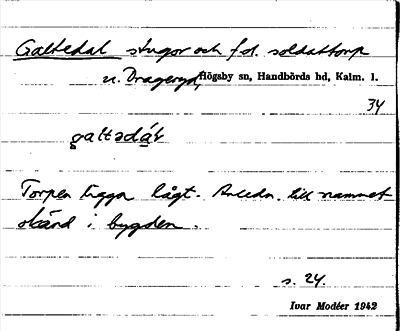 Galtedal stugor och f.d. soldattorp
u. Drageryd, Högsby sn, Handbörds hd, Kalm. l.
34
galtədá̱l
Torpen ligga lågt. Anledn. till namnet
okänd i bygden.
s. 24.
Ivar Modéer 1942